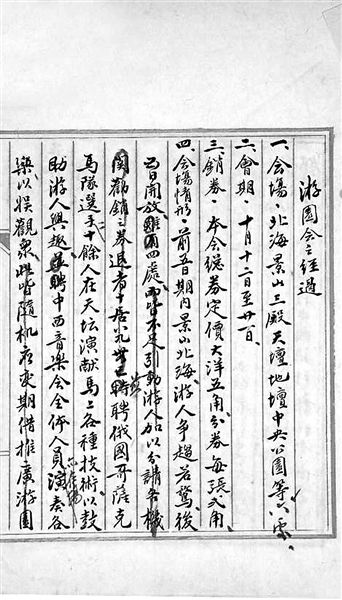 游园会之经过
一、会场・北海景山三殿天壇地壇中央公園等六處、
二、會期・十月十二日至廿一日、
三、銷券・本会總券定價大洋五角分券每張弍角、
四、会場情形・前五日期内景山北海、游人争趨若鶩後
五日開放 四處 皆不足引動游人加以分請各機
関勸銷之券退者十居 聘俄國哥薩克
馬隊選手十餘人在天坛演献馬上各種技術以鼓
助游人興趣 聘中西音樂会全体人員演奏各
樂以娱觀衆此皆隨机应变期借推廣游園